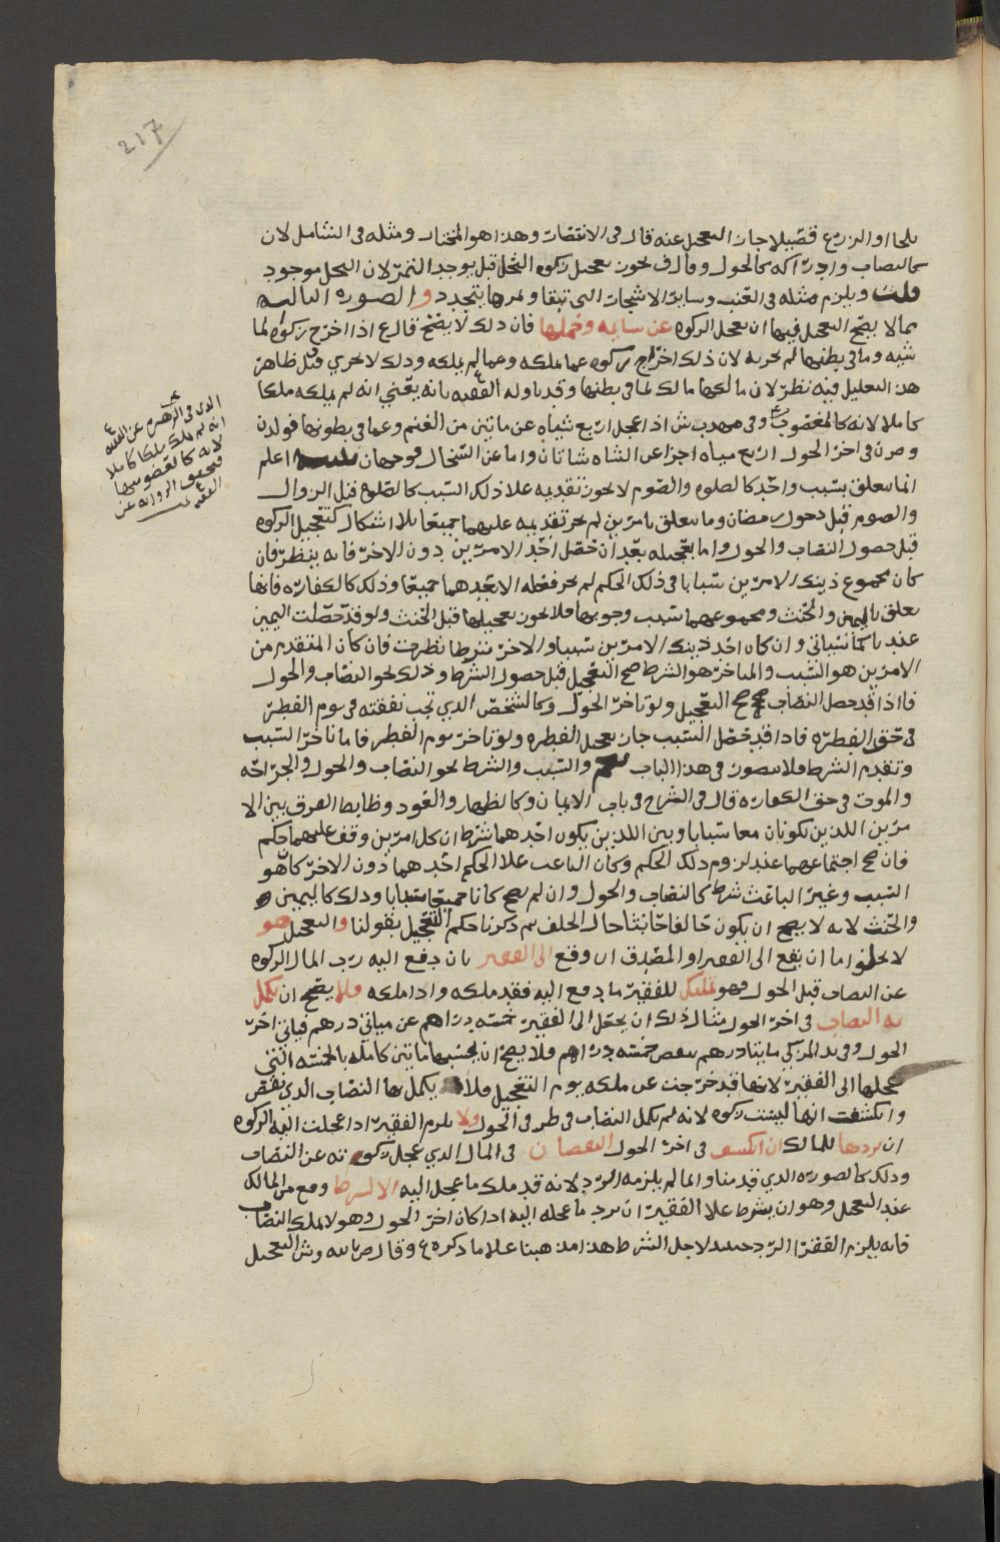 217
بلحا او الزرع قصيلا جاز التعجيل عنه قال في الانتصار وهذا هو المختار ومثله في الشامل لان
كالنصاب وادراكه كالحول وقال ف يجوز تعجيل زكوه النخل قبل يوجد التمر لان النخل موجود
قلت ويلزم مثله في العنب وسائر الاشجار التي تبقا وثمرها يتجدد و الصوره الثالثه
مما لا يصح التعجيل فيها ان يعجل الزكوه عن سايمه وحملها فان ذلك لا يصح قال ع اذا اخرج زكوه لما
شيه وما في بطنها لم يجزيه لان ذلك اخراج زكوه عما ملكه وعما لم يملكه وذلك لا يجزي وقيل ظاهر
هذا التعليل فيه نظر لان مالكها مالك لما في بطنها وقد تاوله الفقيه بانه يعني انه لم يملكه ملكا
كاملا لانه كالمغصوب وفي مهذب ش اذا عجل اربع شياه عن مائتين من الغنم وعما في بطونها فولدن
ومرن في اخر الحول اربع شياه اجزا عن الشاه شاتان واما عن السخال فوجهان تنبيه اعلم
انما تعلق بسبب واحد كالصلوه والصوم لا يجوز تقديمه علا ذلك السبب كالصلوه قبل الزوال
والصوم قبل دخول رمضان وما تعلق بامرين لم يجز تقديمه عليهما جميعا بلا اشكال كتعجيل الزكوه
قبل حصول النصاب والحول واما تعجيله بعد ان حصل احد الامرين دون الاخر فانه ينظر فان
كان مجموع ذينك الامرين سببا با في ذلك الحكم لم يجز فعله الا بعدهما جميعا وذلك كالكفاره فانها
تعلق باليمين والحنث ومجموعهما سبب وجوبها فلا يجوز تعجيلها قبل الحنث ولو قد حصلت اليمين
عندنا كما سياتي وان كان احد ذينك الامرين سببا والاخر شرطا نظرت فان كان المتقدم من
الامرين هو السبب والمتاخر هو الشرط صح التعجيل قبل حصول الشرط وذلك نحو النصاب والحول
فاذا قد حصل النصاب صح التعجيل ولو تاخر الحول وكالشخص الذي تجب نفقته في يوم الفطر
في حق الفطره فاذا قد حصل السبب جاز تعجيل الفطره ولو تاخر يوم الفطر فاما تاخر السبب
وتقدم الشرط فلا يتصور في هذا الباب والسبب والشرط نحو النصاب والحول والجراحه
والموت في حق الكفاره قال في الشرح في باب الايمان وكالظهار والعود وظابط الفرق بين الا
مرين اللذين يكونان معا سببا با وبين اللذين يكون احدهما شرطا ان كل امرين وقف عليهما حكم
فان صح اجتماعهما عند لزوم ذلك الحكم وكان الباعث علا الحكم احدهما دون الاخر كان هو
السبب وغير الباعث شرط كالنصاب والحول وان لم يصح كانا جميعا سببا با وذلك كاليمين
والحنث لانه لا يصح ان يكون حالفا حانثا حال الحلف ثم ذكرنا حكم التعجيل بقولنا والتعجيل هو
لا يخلوا اما ان يقع الى الفقير او المصدق ان وقع الى الفقير بان دفع اليه رب المال الزكوه
عن النصاب قبل الحول فهو تمليك للفقير ما دفع اليه فقد ملكه واذا ملكه فلا يصح ان يكمل
به النصاب في اخر الحول مثال ذلك ان يعجل الى الفقير خمسه دراهم عن ميايتي درهم فياتي اخر
الحول وفي يد المزكي مايتا درهم تنقص خمسه دراهم فلا يصح ان يحسبها مائتين كامله بالخمسه التي
عجلها الى الفقير لانها قد خرجت عن ملكه يوم التعجيل فلا يكمل بها النصاب الذي نقص
وانكشفت انها ليست زكوه لانه لم يكمل النصاب في طرفي الحول ولا يلزم الفقير اذا عجلت اليه الزكوه
ان يردها للمالك ان انكشف في اخر الحول النقصان في المال الذي عجل زكوته عن النصاب
وذلك كالصوره الذي قدمنا وانما لم يلزمه الرد لانه قد ملك ما عجل اليه الا لشرط وقع من المالك
عند التعجيل وهو ان يشرط علا الفقير ان يرد ما عجله اليه اذا كان اخر الحول وهو لا يملك النصاب
فانه يلزم الفقير الرد حينئذ لاجل الشرط هذا مذهبنا علا ما ذكره ع وقال ص بالله وش التعجيل
الذي في الزهره عن الفقيه
انه لم يملك ملكا كاملا
لانه كالمغصوب
فيحقق الروايه عن
الفقيه